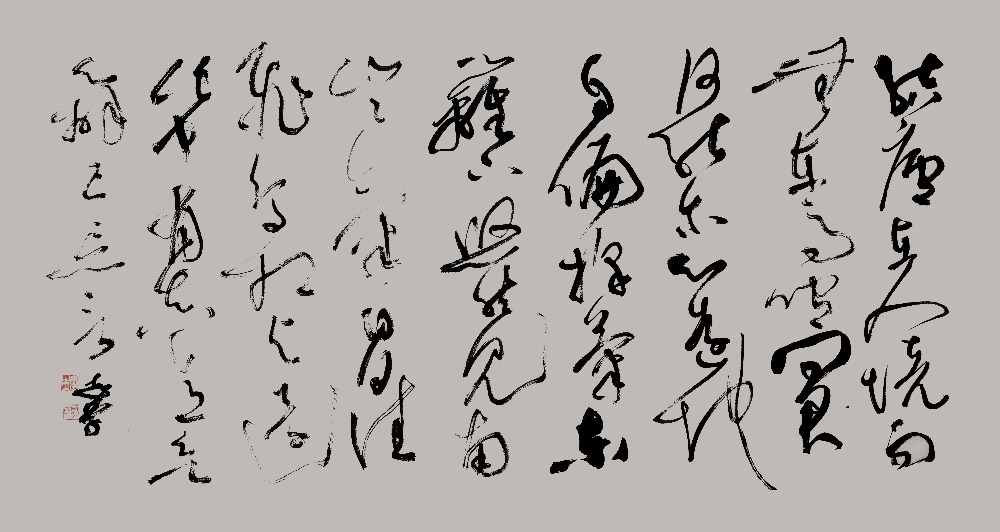 結廬在人境而
無車馬喧問君
何能尔心遠地
自偏採菊東
籬下悠然見南
山山氣日夕佳
飛鳥相與還
此中有真意欲
辨已忘言 書